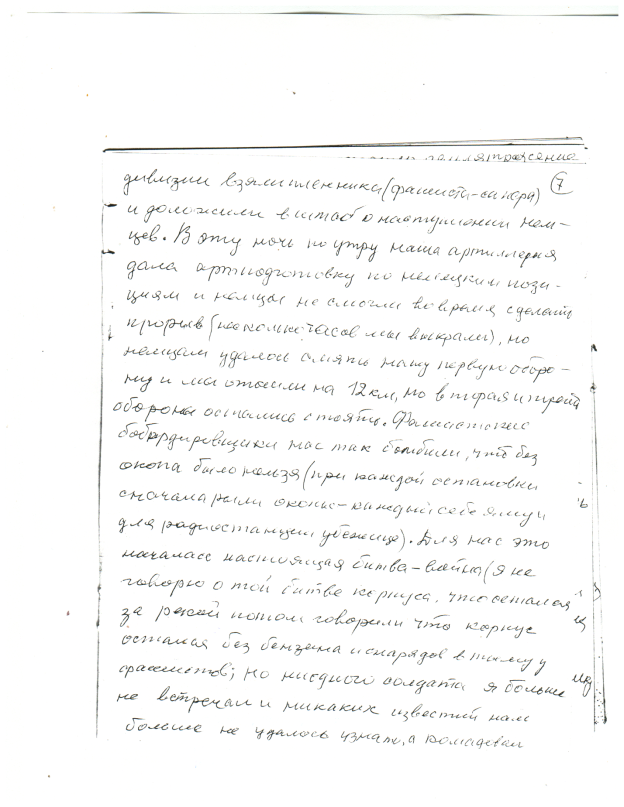 7
дивизии взяли пленника (фашиста-сапера)
и доложили в штаб о наступлении нем-
цев. В эту ночь по утру наша артиллерия
дала артподготовку по немецким пози-
циям и немцы не смогли во время сделать
прорыв (несколько часов мы выкрали), но
немцам удалось смять нашу первую оборо-
ну и мы отошли на 12 км, но вторая и третья
обороны остались стоять. Фашистские
бобардировщики нас так бомбили, что без
окопа было нельзя (при каждой остановки
сначала рыли окопы - каждый себе яму и
для радиостанции убежище). Для нас это
началась настоящая битва-война (я не
говорю о той битве корпуса, что остался
за рекой потом говорили что корпус
остался без бензина и снарядов в тылу у
фашистов; но ниодного солдата я больше
не встречал и никаких известий нам
больше не удалось узнать, а